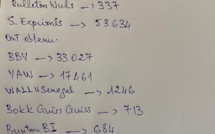 Bulletin Nuls -> 337
S. Exprimés -> 53 634
Ont obtenu.
BBY -> 33 027
YAW -> 17461
WALLU Senegal -> 1246
Bokk Guiss Guiss -> 713
Buntu BI -> 684